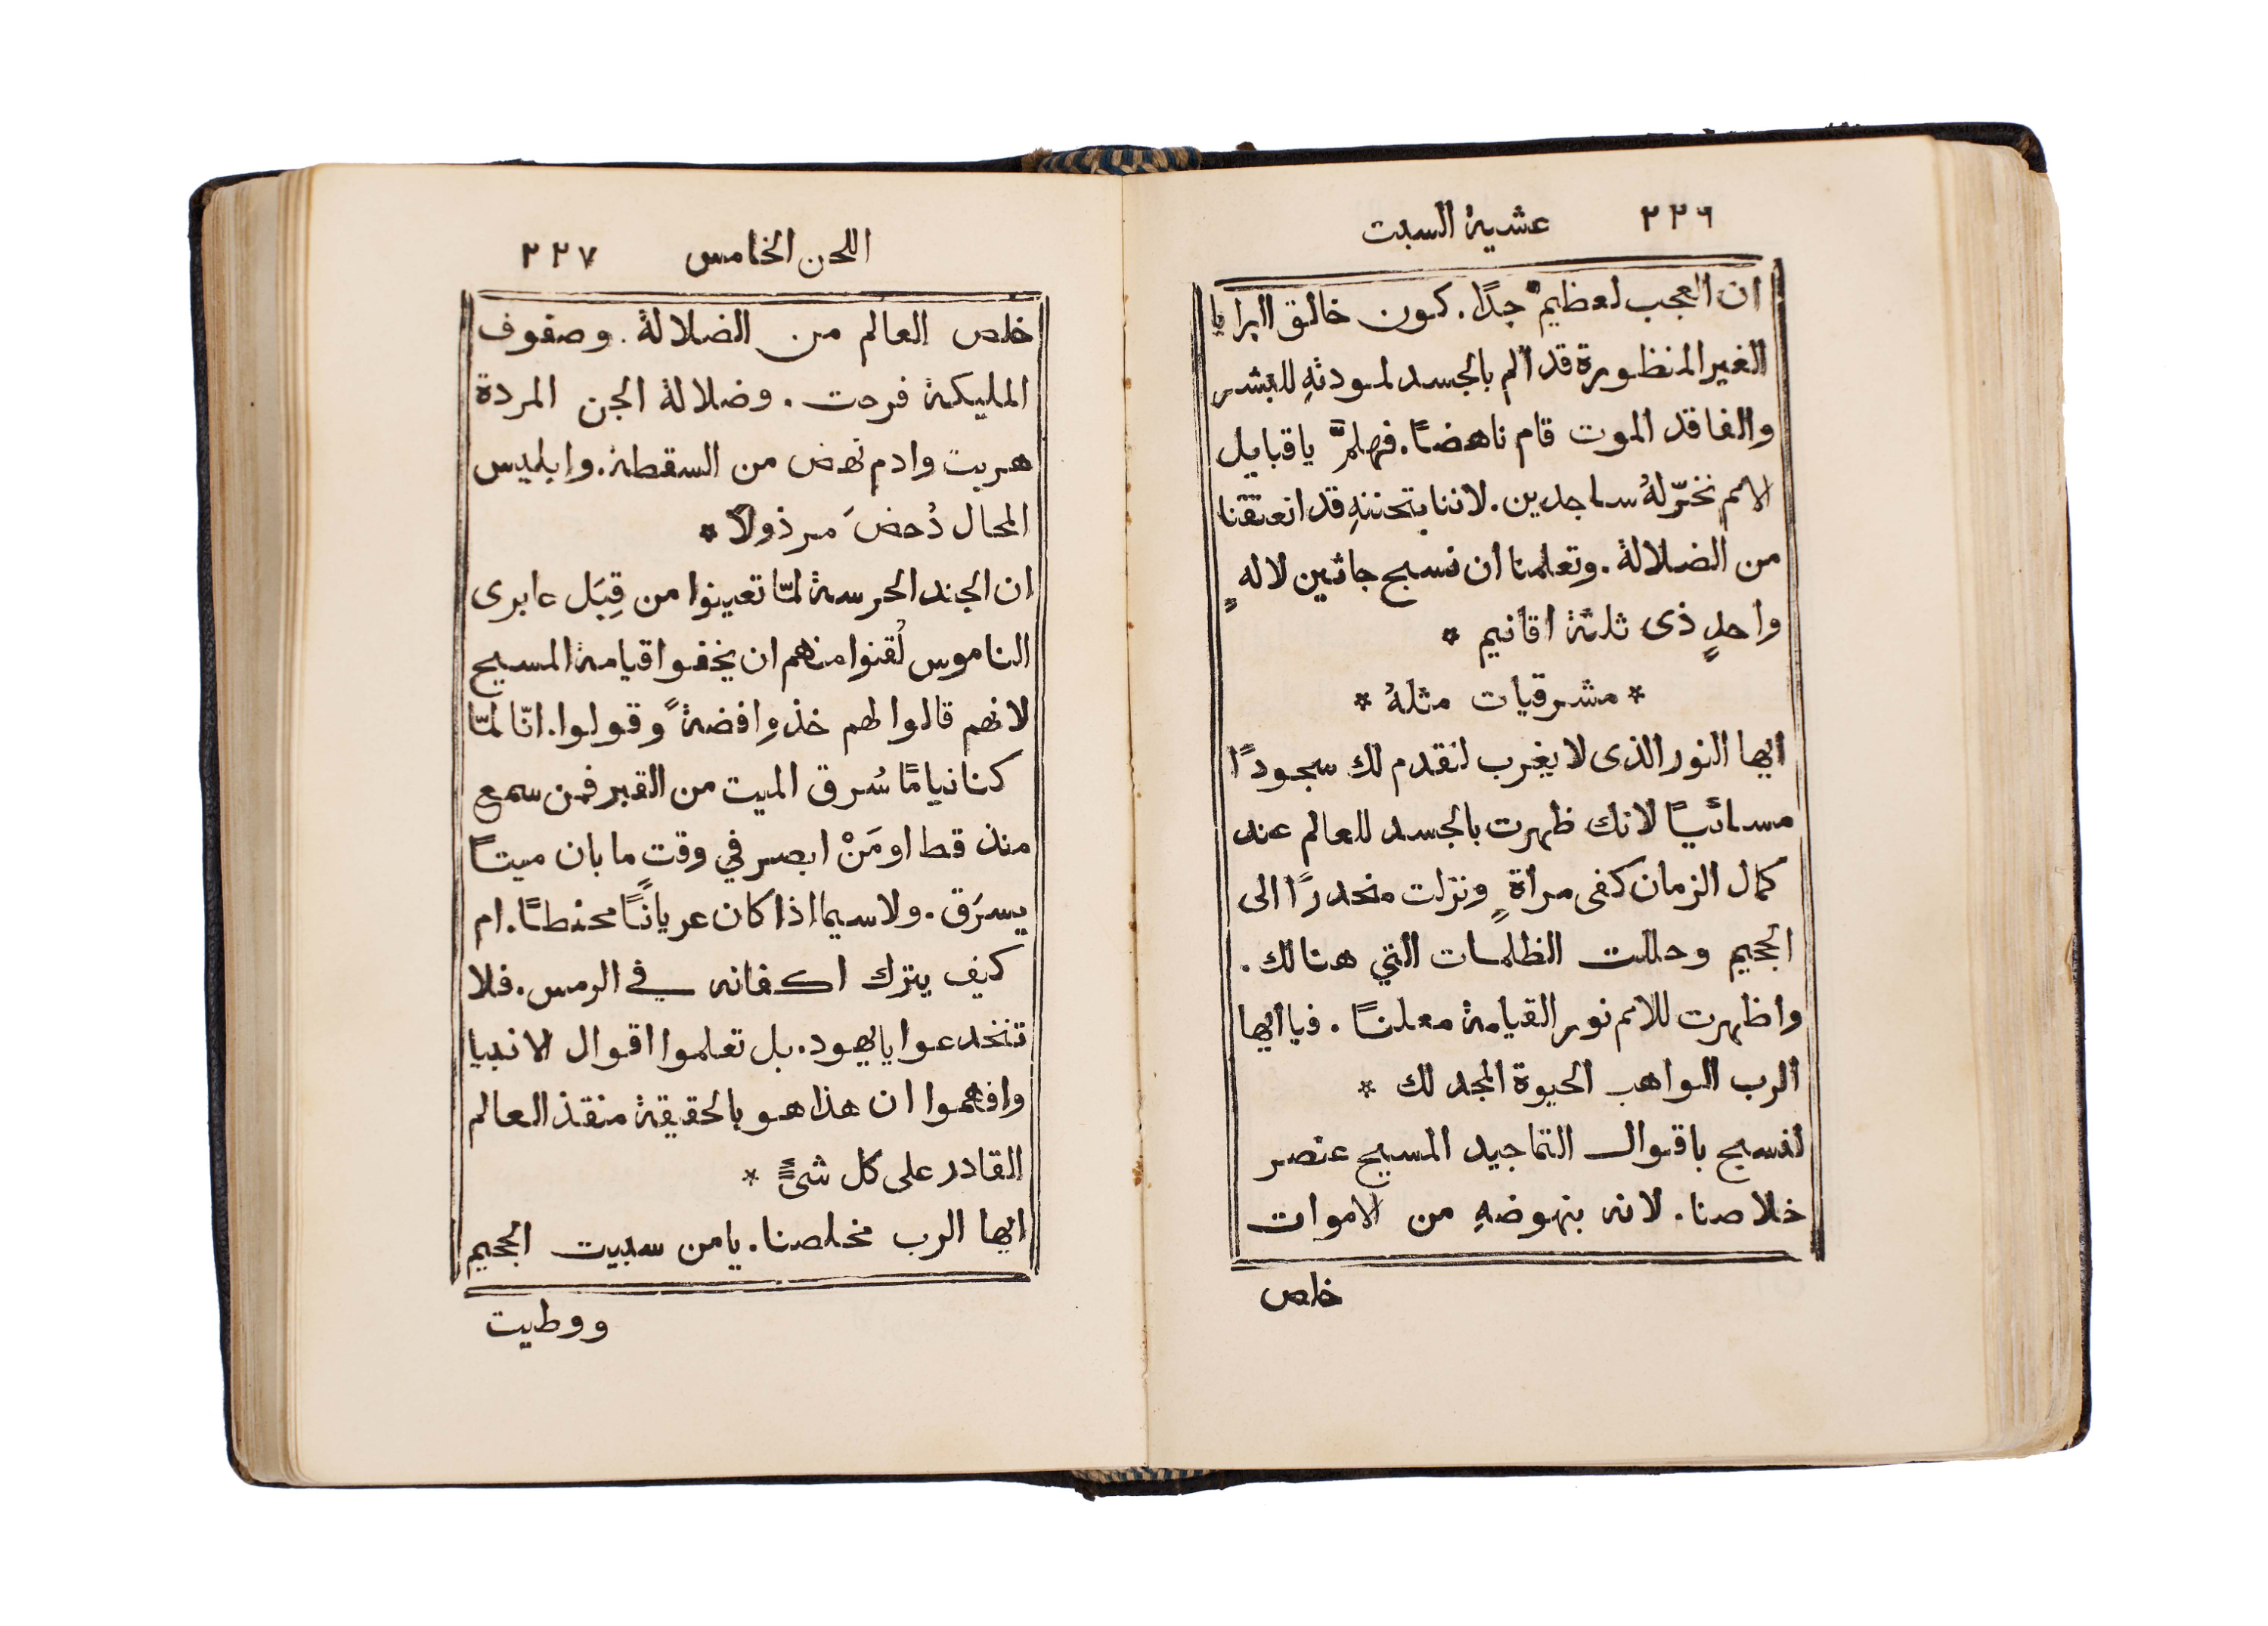 ٢٢٦ عشية السبت
ان العجب لعظيمٌ جدًا. كون خالق البرايا
الغير المنظورة قد ألم بالجسد لمودتهِ للبشر
والفاقد الموت قام ناهضًا. فهلمَّ ياقبايل
الامم نخرّ لهُ ساجدين. لاننا بتحننهِ قد انعتقنا
من الضلالة. وتعلمنا ان نسبح جاثين لالهٍ
واحدٍ ذى ثلثة اقانيم *
* مشرقيات مثلهُ *
ايها النور الذى لا يغرب لنقدم لك سجودًا
مسائيًا لانك ظهرت بالجسد للعالم عند
كمال الزمان كفى مراةٍ ونزلت منحدرًا الى
الجحيم وحللت الظلمات التي هنالك.
واظهرت للامم نور القيامة معلنًا. فيا ايها
الرب الواهب الحيوة المجد لك *
لنسبح باقوال التماجيد المسيح عنصر
خلاصنا. لانه بنهوضهِ من الاموات
خلص
اللحن الخامس ٢٢٧
خلص العالم من الضلالة. وصفوف
المليكة فرحت. وضلالة الجن المردة
هربت وادم نهض من السقطة. وابليس
المحال دُحضَ مرذولاً *
ان الجند الحرسة لمّا تعينوا من قِبَل عابرى
الناموس لُقنوا منهم ان يخفوا قيامة المسيح
لانهم قالوا لهم خذوا فضةً وقولوا. انّا لمّا
كنا نيامًا سُرق الميت من القبر فمن سمع
منذ قط او مَنْ ابصر في وقتٍ ما بان ميتًا
يسرَق. ولاسيما اذا كان عريانًا محنطًا. ام
كيف يترك اكفانه في الرمس. فلا
تنخدعوا يايهود. بل تعلموا اقوال الانبيا
وافهموا ان هذا هو بالحقيقة منقذ العالم
القادر على كل شىءٍ *
ايها الرب مخلصنا. يامن سبيت الجحيم
ووطيت